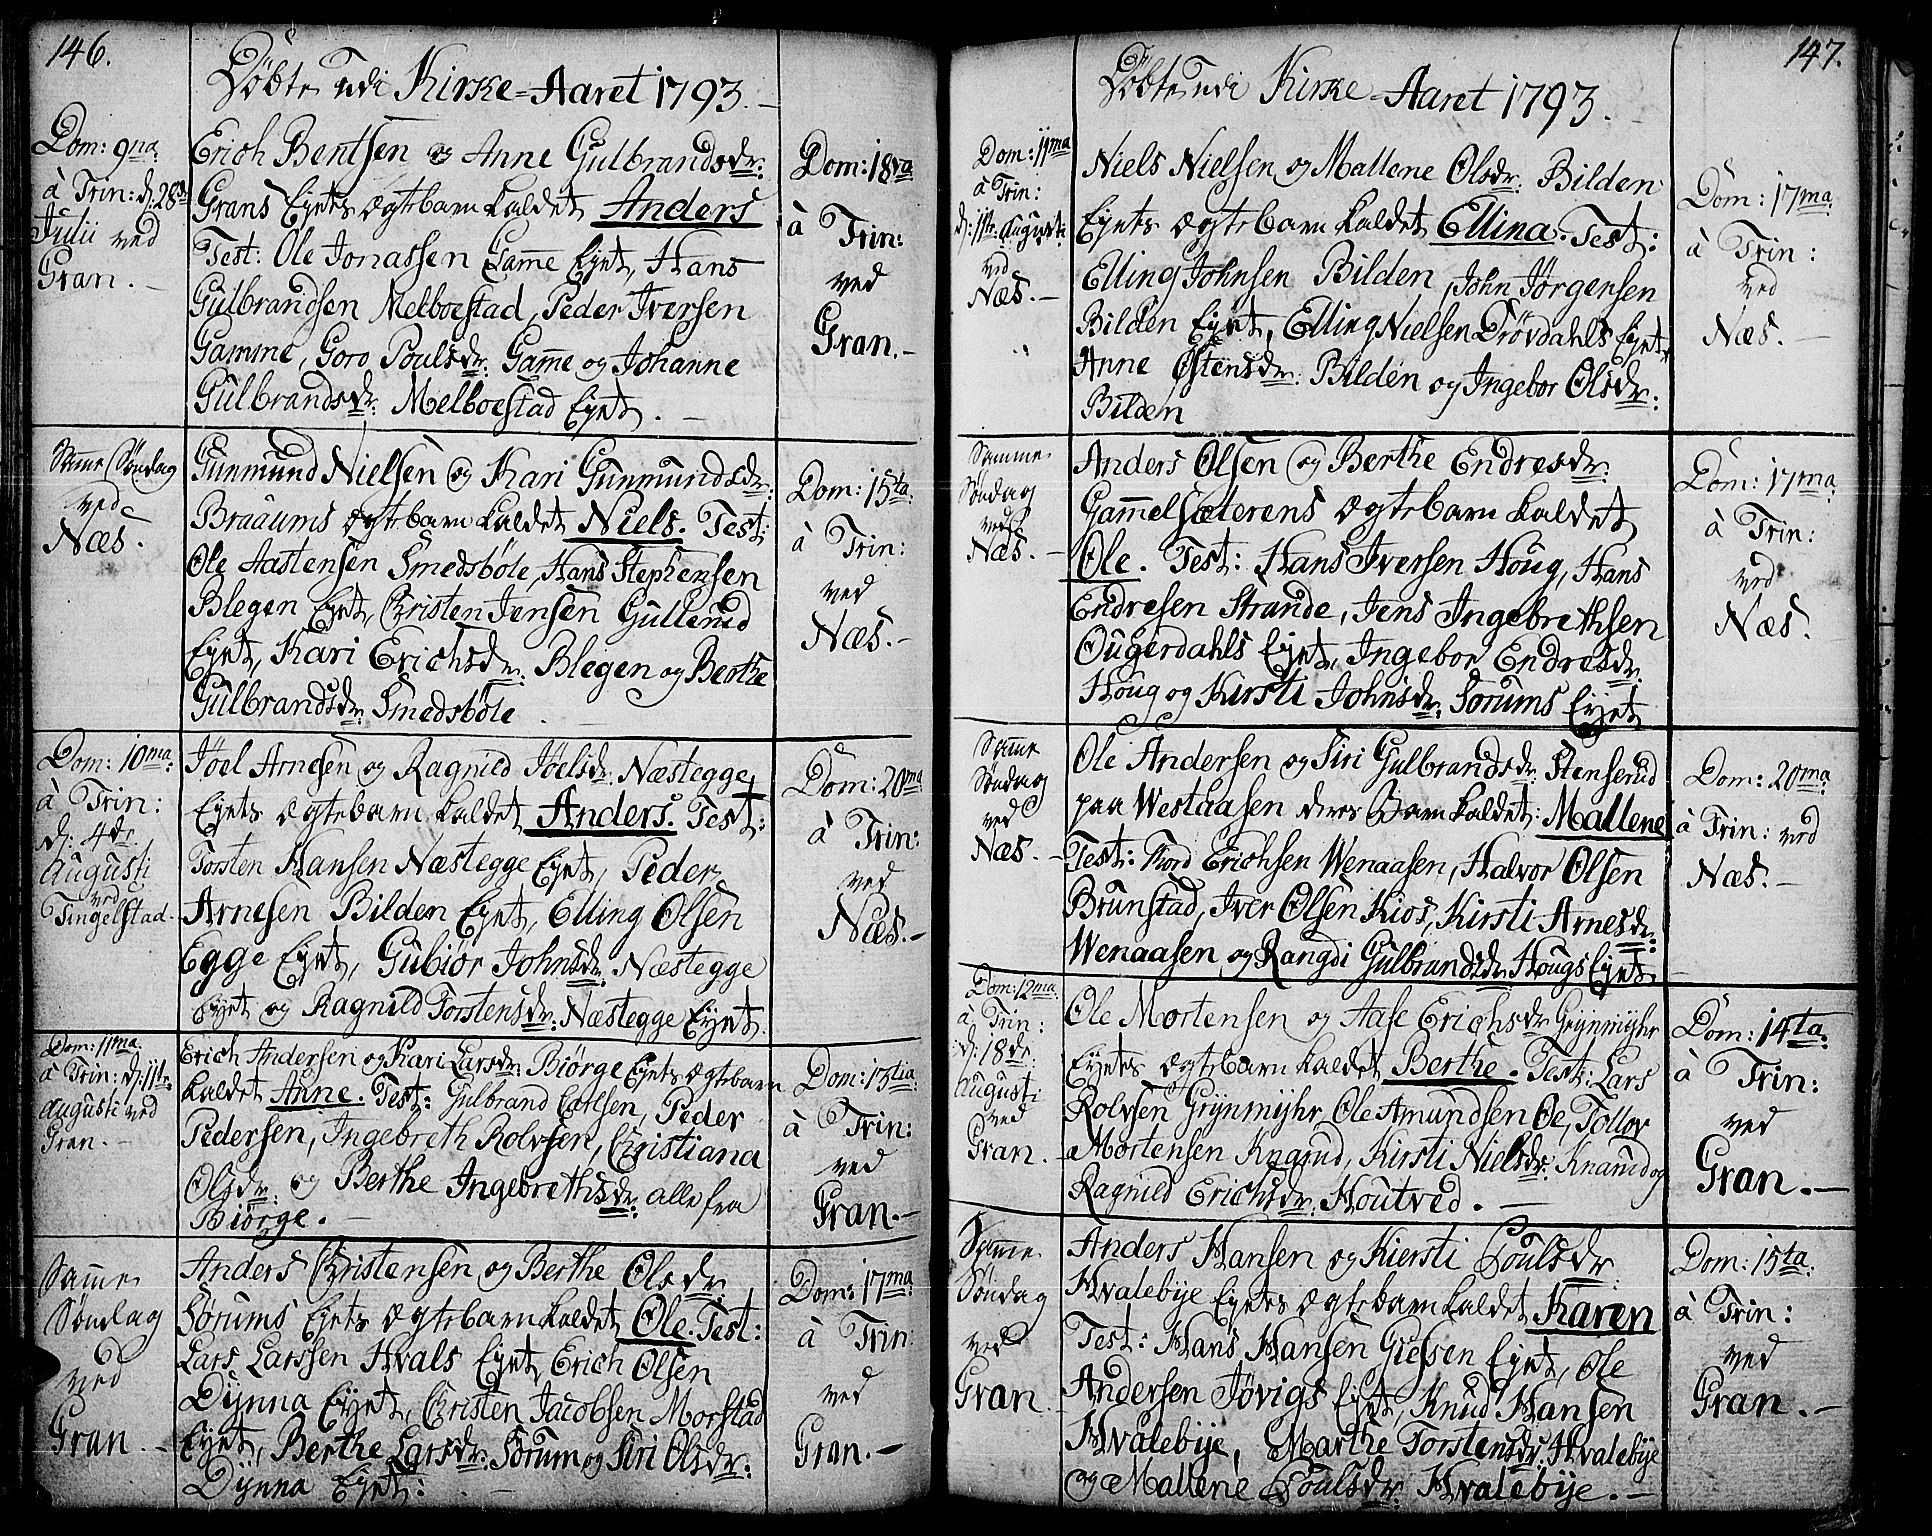 146.
Döbte udi Kirke=Aaret 1793.
Dom: 9na
à Trin: d: 28de
Julii ved
Gran.
Erich Bentsen og Anne Gulbrandsdr:
Grans Eyets ægtebarn kaldet Anders
Test: Ole Jonassen Gamme Eyet, Hans
Gulbrandsen Melboestad, Peder Iversen
Gamme, Goro Poulsdr: Gamme og Johanne
Gulbrandsdr: Melboestad Eyet.
Dom: 18va
à Trin:
ved
Gran.
Samme Søndag
ved
Næs.
Gunmund Nielsen og Kari Gunmundsdr:
Braaums ægtebarn kaldet Niels. Test:
Ole Aastensen Smedsböle, Hans Stephensen
Blegen Eyet, Christen Jensen Gullerud
Eyet, Kari Erichsdr: Blegen og Berthe
Gulbrandsdr: Smedsböle
Dom: 15ta
à Trin:
ved
Næs.
Dom: 10ma
à Trin:
d: 4de
Augusti
ved
Tingelstad.
Jöel Arnesen og Ragnild Jöelsdr: Næstegge
Eyets ægtebarn kaldet Anders. Test:
Torsten Hansen Næstegge Eyet, Peder
Arnesen Bilden Eyet, Elling Olsen
Egge Eyet, Gubiör Johnsdr: Næstegge
Eyet og Ragnild Torstensdr: Næstegge Eyet.
Dom: 20ma
à Trin:
ved
Næs.
Dom: 11ma
à Trin: d: 11te
Augusti ved
Gran.
Erich Andersen og Kari Larsdr: Biörge Eyets ægtebarn
kaldet Anne. Test: Gulbrand Carlsen, Peder
Pedersen, Ingebreth Rolvsen, Christiana
Olsdr: og Berthe Ingebrethsdr: alle fra
Biörge.
Dom: 13tia
à Trin:
ved
Gran.
Samme
Søndag
ved
Gran.
Anders Christensen og Berthe Olsdr:
Sörums Eyets ægtebarn kaldet Ole. Test:
Lars Larssen Hvals Eyet, Erich Olsen
Dynna Eyet, Christen Jacobsen Morstad
Eyet, Berthe Larsdr: Sörum og Siri Olsdr:
Dynna Eyet:
Dom: 17ma
à Trin:
ved
Gran.
147.
Döbte udi Kirke=Aaret 1793.
Dom: 11ma
à Trin:
d: 11te Augusti
ved
Næs.
Niels Nielsen og Mallene Olsdr: Bilden
Eyets ægtebarn kaldet Ellina. Test:
Elling Johnsen Bilden, John Jörgensen
Bilden Eyet, Elling Nielsen Dröv­dahls Eyet
Anne Östensdr: Bilden og Ingebor Olsdr:
Bilden
Dom: 17ma
à Trin:
ved
Næs.
Samme
Søndag
ved
Næs.
Anders Olsen og Berthe Endresdr:
Gammelsæterens ægtebarn kaldet
Ole. Test: Hans Iversen Houg, Hans
Endresen Strande, Jens Ingebrethsen
Ougerdahls Eyet, Ingebor Endresdr:
Houg og Kirsti Johnsdr: Sörums Eyet
Dom: 17ma
à Trin:
ved
Næs.
Samme
Søndag
ved
Næs.
Ole Andersen og Siri Gulbrandsdr: Stenserud
paa Westaasen deres Barn kaldet: Mallene
Test: Thord Erichsen Wenaasen, Halvor Olsen
Brunstad, Iver Olsen Kios, Kirsti Arnesdr:
Wenaasen og Rangdi Gulbrandsdr: Hougs Eyet.
Dom: 20ma
à Trin: ved
Næs.
Dom: 12ma
à Trin:
d: 18de
Augusti
ved
Gran.
Ole Mortensen og Aase Erichsdr: Grynmyhr
Eyets ægtebarn kaldet Berthe. Test: Lars
Rolvsen Grynmyhr, Ole Amundsen Oe, Tollov
Mortensen Knarud, Kirsti Nielsdr: Knarud og
Ragnild Erichsdr: Houtved.
Dom: 14ta
à Trin:
ved
Gran.
Samme
Søndag
ved
Gran.
Anders Hansen og Kiersti Poulsdr:
Hvalebye Eyets ægtebarn kaldet Karen
Test: Hans Hansen Giefsen Eyet, Ole
Andersen Jövigs Eyet, Knud Hansen
Hvalebye, Marthe Torstensdr: Hvalebye
og Mallene Poulsdr: Hvalebye.
Dom: 15ta
à Trin:
ved
Gran.